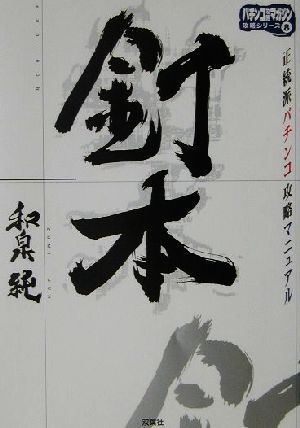 パチンコ攻略マガジン
攻略シリーズ
正統派パチンコ攻略マニュアル
釘本
和泉純
双葉社